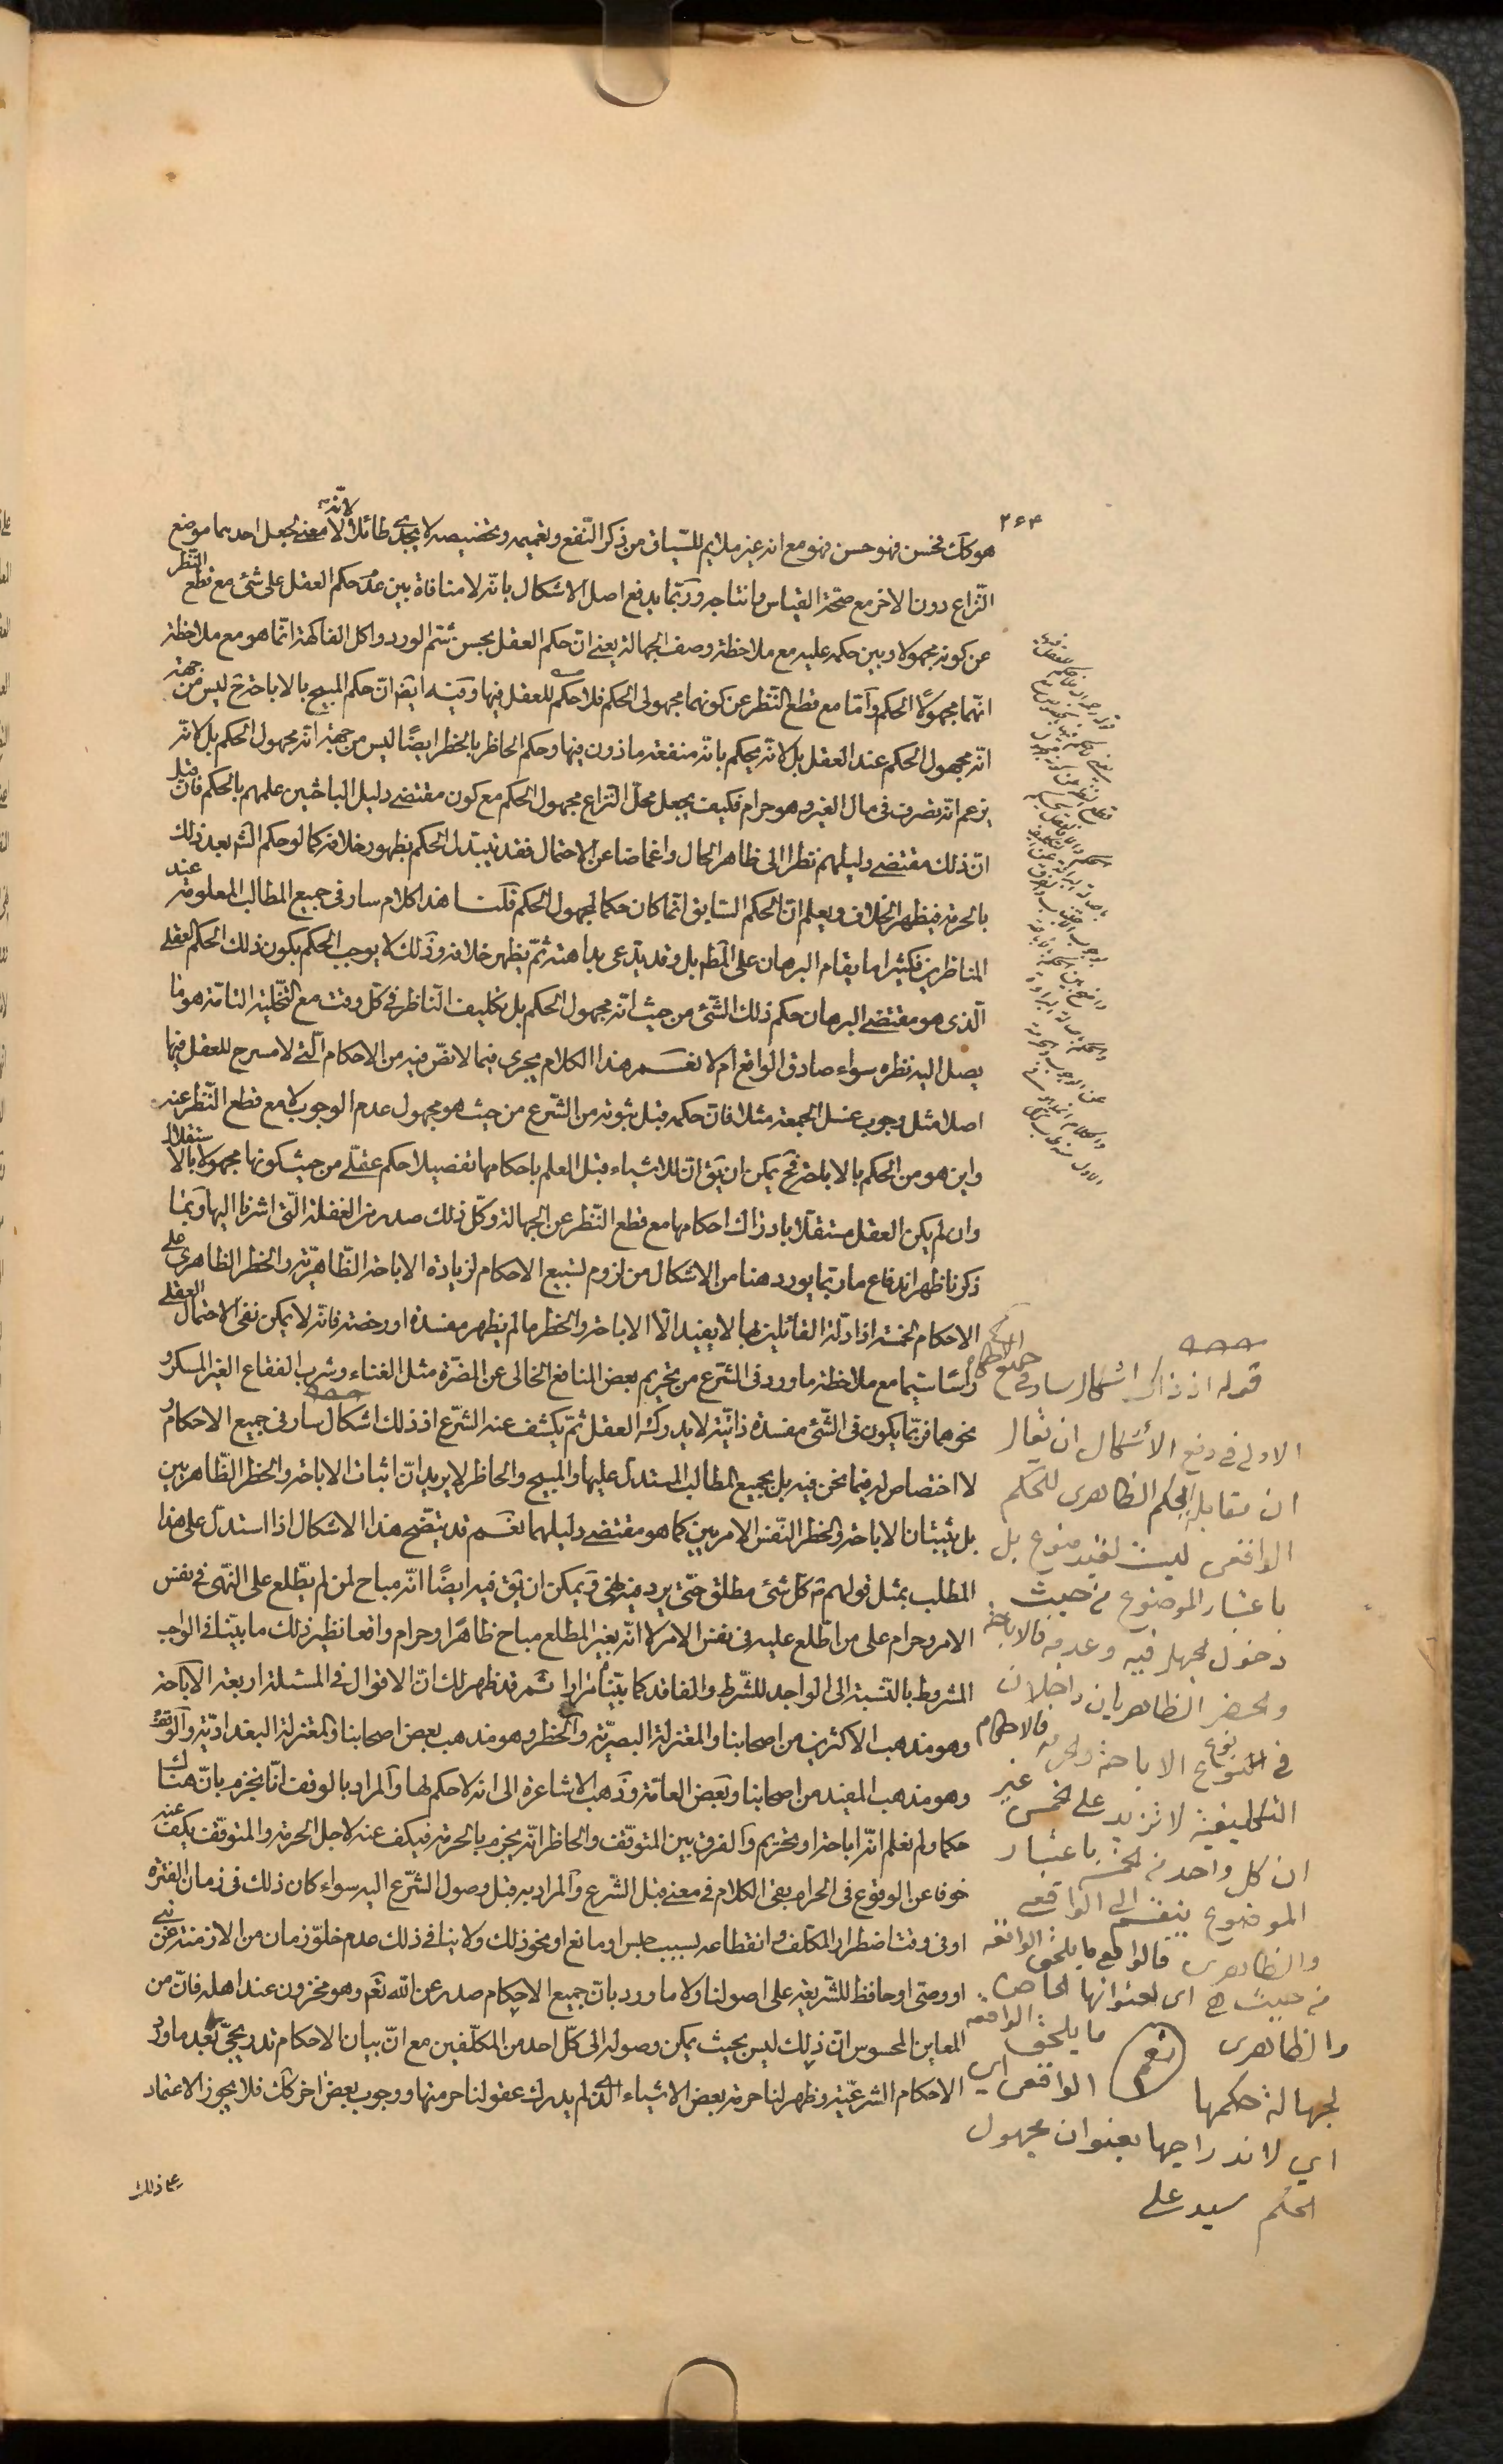 ۲۶۳
هو كك فحسن فهو حسن فهو مع انه غير ملايم للسّياق من ذكر النّفع وتعميمه وتخصيصه لا يجدى طائلا لانّه لا معنى لجعل احدهما موضع
النّزاع دون الاخر مع صحّة القياس وانتاجه وربّما يدفع اصل الاشكال بانّه لا منافاة بين عدم حكم العقل على شئ مع قطع النّظر
عن كونه مجهولا وبين حكمه عليه مع ملاحظة وصف الجهالة يعنى انّ حكم العقل بحسن شمّ الورد واكل الفاكهة انّما هو مع ملاحظة
انّهما مجهولا الحكم وامّا مع قطع النّظر عن كونهما مجهولى الحكم فلا حكم للعقل فيها وفيه ايضا انّ حكم المبيح بالاباحة ح ليس من جهة
انّه مجهول الحكم عند العقل بل لانّه يحكم بانّه منفعة ماذون فيها وحكم الحاظر بالحظر ايضًا ليس من جهة انّه مجهول الحكم بل لانّه
يزعم انّه تصرف فى مال الغير وهو حرام فكيف يجعل محلّ النّزاع مجهول الحكم مع كون مقتضى دليل الباحثين علمهم بالحكم فان قيل
انّ ذلك مقتضى دليلهم نظرا الى ظاهر الحال واغماضا عن الاحتمال فقد يتبدل الحكم بظهور خلافه كما لو حكم الشّرع بعد ذلك
بالحرمة فيظهر الخلاف ويعلم انّ الحكم السّابق انّما كان حكما لمجهول الحكم قلنا هذا كلام سار فى جميع المطالب المعلومة عند
المناظرين فكثيرا ما يقام البرهان على المط بل وقد يدّعى بداهته ثمّ يظهر خلافه وذلك لا يوجب الحكم بكون ذلك الحكم العقلى
الّذى هو مقتضى البرهان حكم ذلك الشّئ من حيث انّه مجهول الحكم بل تكليف النّاظر فى كلّ وقت مع التّخلية التامّة هو ما
يصل اليه نظره سواء صادف الواقع ام لا نعم هذا الكلام يجرى فيما لا نصّ فيه من الاحكام الّتى لا مسرح للعقل فيها
اصلا مثل وجوب غسل الجمعة مثلا فان حكمه قبل ثبوته من الشّرع من حيث هو مجهول عدم الوجوب لا مع قطع النّظر عنه
واين هو من الحكم بالاباحة فح يمكن ان يق انّ للاشياء قبل العلم باحكامها تفصيلا حكم عقلى من حيث كونها مجهولا بالاستقلال
وان لم يكن العقل مستقلّا بادراك احكامها مع قطع النّظر عن الجهالة وكلّ ذلك صدر من الغفلة الّتى اشرنا اليها وبما
ذكرنا ظهر اندفاع ما ربّما يورد هنا من الاشكال من لزوم تسبيع الاحكام لزيادة الاباحة الظّاهريّة والحظر الظاهرى على
الاحكام الخمسة اذ ادلّة القائلين بهما لا يفيد الّا الاباحة والحظر ما لم يظهر مفسدة او رخصة فانّه لا يمكن نفى الاحتمال العقلى
راسًا سيّما مع ملاحظة ما ورد فى الشّرع من تحريم بعض المنافع الخالى عن المضرّة مثل الغناء وشرب الفقاع الغير المسكر و
نحوهما فربّما يكون فى الشّئ مفسدة ذاتيّة لا يدركه العقل ثمّ يكشف عنه الشّرع اذ ذلك اشكال سار فى جميع الاحكام و
لا اختصاص له فيما نحن فيه بل بجميع المطالب المستدل عليها والمبيح والحاظر لا يريد انّ اثبات الاباحة والحظر الظّاهريين
بل يثبتان الاباحة والحظر النّفس الامريين كما هو مقتضى دليلهما نعم قد يتّضح هذا الاشكال اذا استدلّ على هذا
المطلب بمثل قولهم ع كلّ شئ مطلق حتّى يرد فيه نهى ويمكن ان يق فيه ايضًا انّه مباح لمن لم يطّلع على النّهى فى نفس
الامر وحرام على من اطّلع عليه فى نفس الامر لا انّه بغير المطلع مباح ظاهرًا وحرام واقعا نظير ذلك ما بيّنا فى الواجب
المشروط بالنّسبة الى الواجد للشّرط والفاقد كما بيّناه مرارا ثم قد ظهر لك انّ الاقوال فى المسئلة اربعة الاباحة
وهو مذهب الاكثرين من اصحابنا والمعتزلة البصريّة والحظر وهو مذهب بعض اصحابنا والمعتزلة البغداديّة والوقف
وهو مذهب المفيد من اصحابنا وبعض العامّة وذهب الاشاعرة الى انّه لا حكم لها والمراد بالوقف انّا نجزم بانّ هناك
حكما ولم نعلم انّه اباحة او تحريم والفرق بين المتوقّف والحاظر انّه يجزم بالحرمة فيكف عنه لاجل الحرمة والمتوقّف يكف عنه
خوفا عن الوقوع فى الحرام بقى الكلام فى معنى قبل الشّرع والمراد به قبل وصول الشّرع اليه سواء كان ذلك فى زمان الفترة
او فى وقت اضطرار المكلّف وانقطاعه بسبب حبس او مانع او نحو ذلك ولا ينافى ذلك عدم خلوّ زمان من الازمنة عن نبى
او وصى او حافظ للشّريعة على اصولنا ولا ما ورد بانّ جميع الاحكام صدر عن اللّه تعم وهو مخزون عند اهله فانّ من
المعاين المحسوس انّ ذلك ليس بحيث يمكن وصوله الى كلّ احد من المكلّفين مع انّ بيان الاحكام تدريجىّ فبعد ما ورد
الاحكام الشرعيّة وظهر لنا حرمة بعض الاشياء الّذى لم يدرك عقولنا حرمتها ووجوب بعض اخر كك فلا يجوز الاعتماد
على ذلك
قوله اذ ذاك اشكال سار فى جميع الاحكام
الاولى فى دفع الأشكال ان يقال
ان مقابلة الحكم الظاهرى للحكم
الواقعى ليست لغير منوع بل
باعتبار الموضوع من حيث
دخول الجهل فيه وعدمه فالاباحة
والحضر الظاهريان داخلان
فى نوع الاباحة والحرمة فالاحكام
التكليفية لا تزيد على الخمس غير
ان كل واحد من الخمسة باعتبار
الموضوع ينقسم الى الواقعى
والظاهرى فالواقعى ما يلحق الواقعة
من حيث هى اى لعنوانها الخاص
والظاهرى ما يلحق الواقعة
لجهالة حكمها الواقعى اي
اي لاندراجها بعنوان مجهول
الحكم سيد على